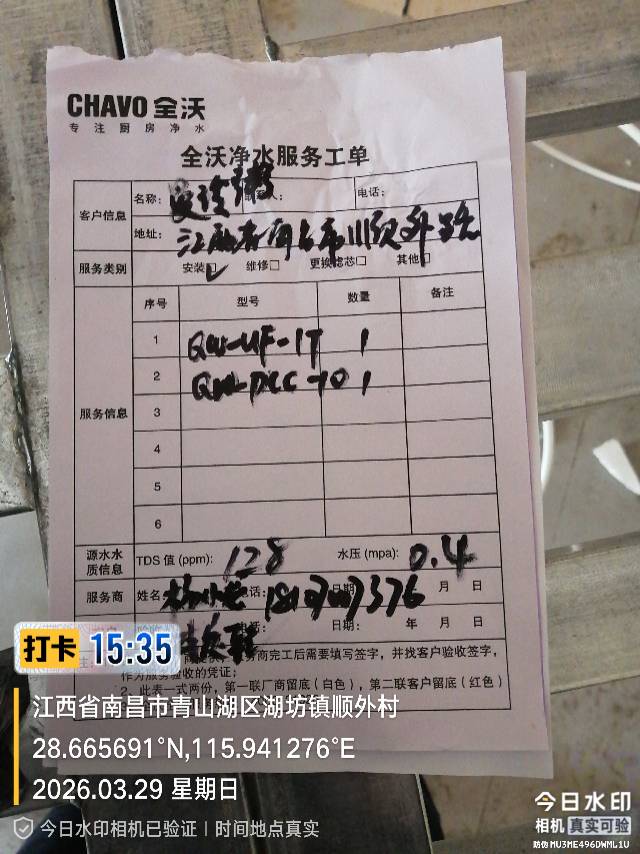 CHAVO 全沃
专注厨房净水
全沃净水服务工单
客户信息
名称: 人: 电话:
地址: 江西省南昌市 顺外
服务类别 安装☑ 维修□ 更换滤芯□ 其他□
服务信息
序号 型号 数量 备注
1 QW-UF-1T 1
2 1
3
4
5
6
源水水质信息 TDS 值 (ppm): 128 水压 (mpa): 0.4
服务商 姓名: 电话: 日期: 月 日
电话: 日期: 年 月 日
商完工后需要填写签字,并找客户验收签字,
作为服务验收的凭证;
2、此表一式两份,第一联厂商留底(白色),第二联客户留底(红色)
打卡 15:35
江西省南昌市青山湖区湖坊镇顺外村
28.665691°N,115.941276°E
2026.03.29 星期日
今日水印相机已验证 | 时间地点真实
今日水印
相机 真实可验
防伪 MU3ME496DWML1U